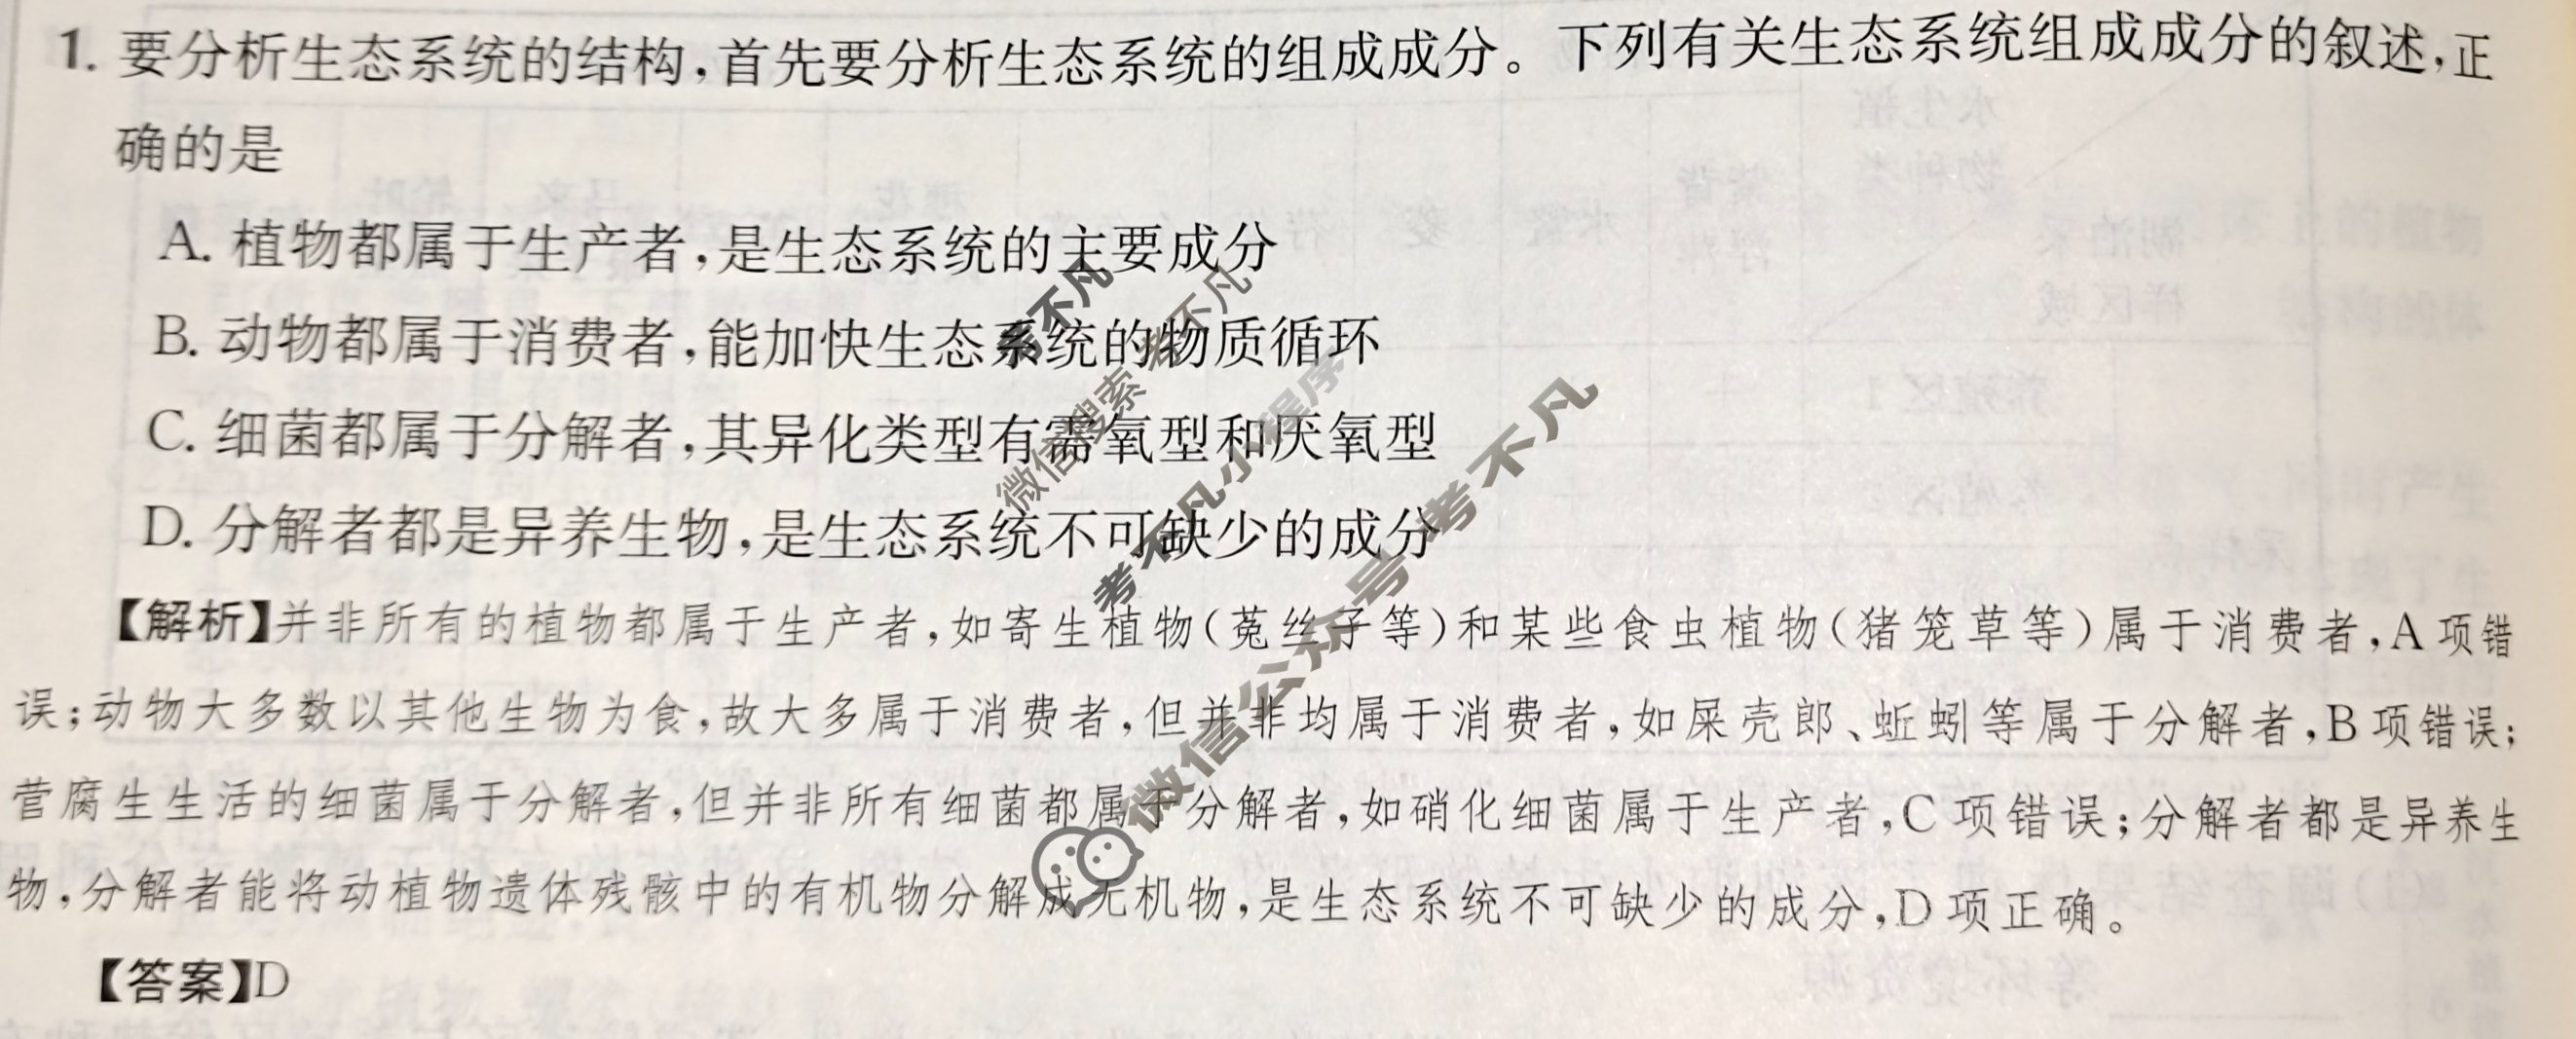 1. 要分析生态系统的结构,首先要分析生态系统的组成成分。下列有关生态系统组成成分的叙述,正
确的是
A. 植物都属于生产者,是生态系统的主要成分
B. 动物都属于消费者,能加快生态系统的物质循环
C. 细菌都属于分解者,其异化类型有需氧型和厌氧型
D. 分解者都是异养生物,是生态系统不可缺少的成分
【解析】并非所有的植物都属于生产者,如寄生植物(菟丝子等)和某些食虫植物(猪笼草等)属于消费者,A 项错
误;动物大多数以其他生物为食,故大多属于消费者,但并非均属于消费者,如屎壳郎、蚯蚓等属于分解者,B 项错误;
营腐生生活的细菌属于分解者,但并非所有细菌都属于分解者,如硝化细菌属于生产者,C 项错误;分解者都是异养生
物,分解者能将动植物遗体残骸中的有机物分解成无机物,是生态系统不可缺少的成分,D 项正确。
【答案】D
考不凡
微信搜索 考不凡
考不凡小程序
微信公众号 考不凡